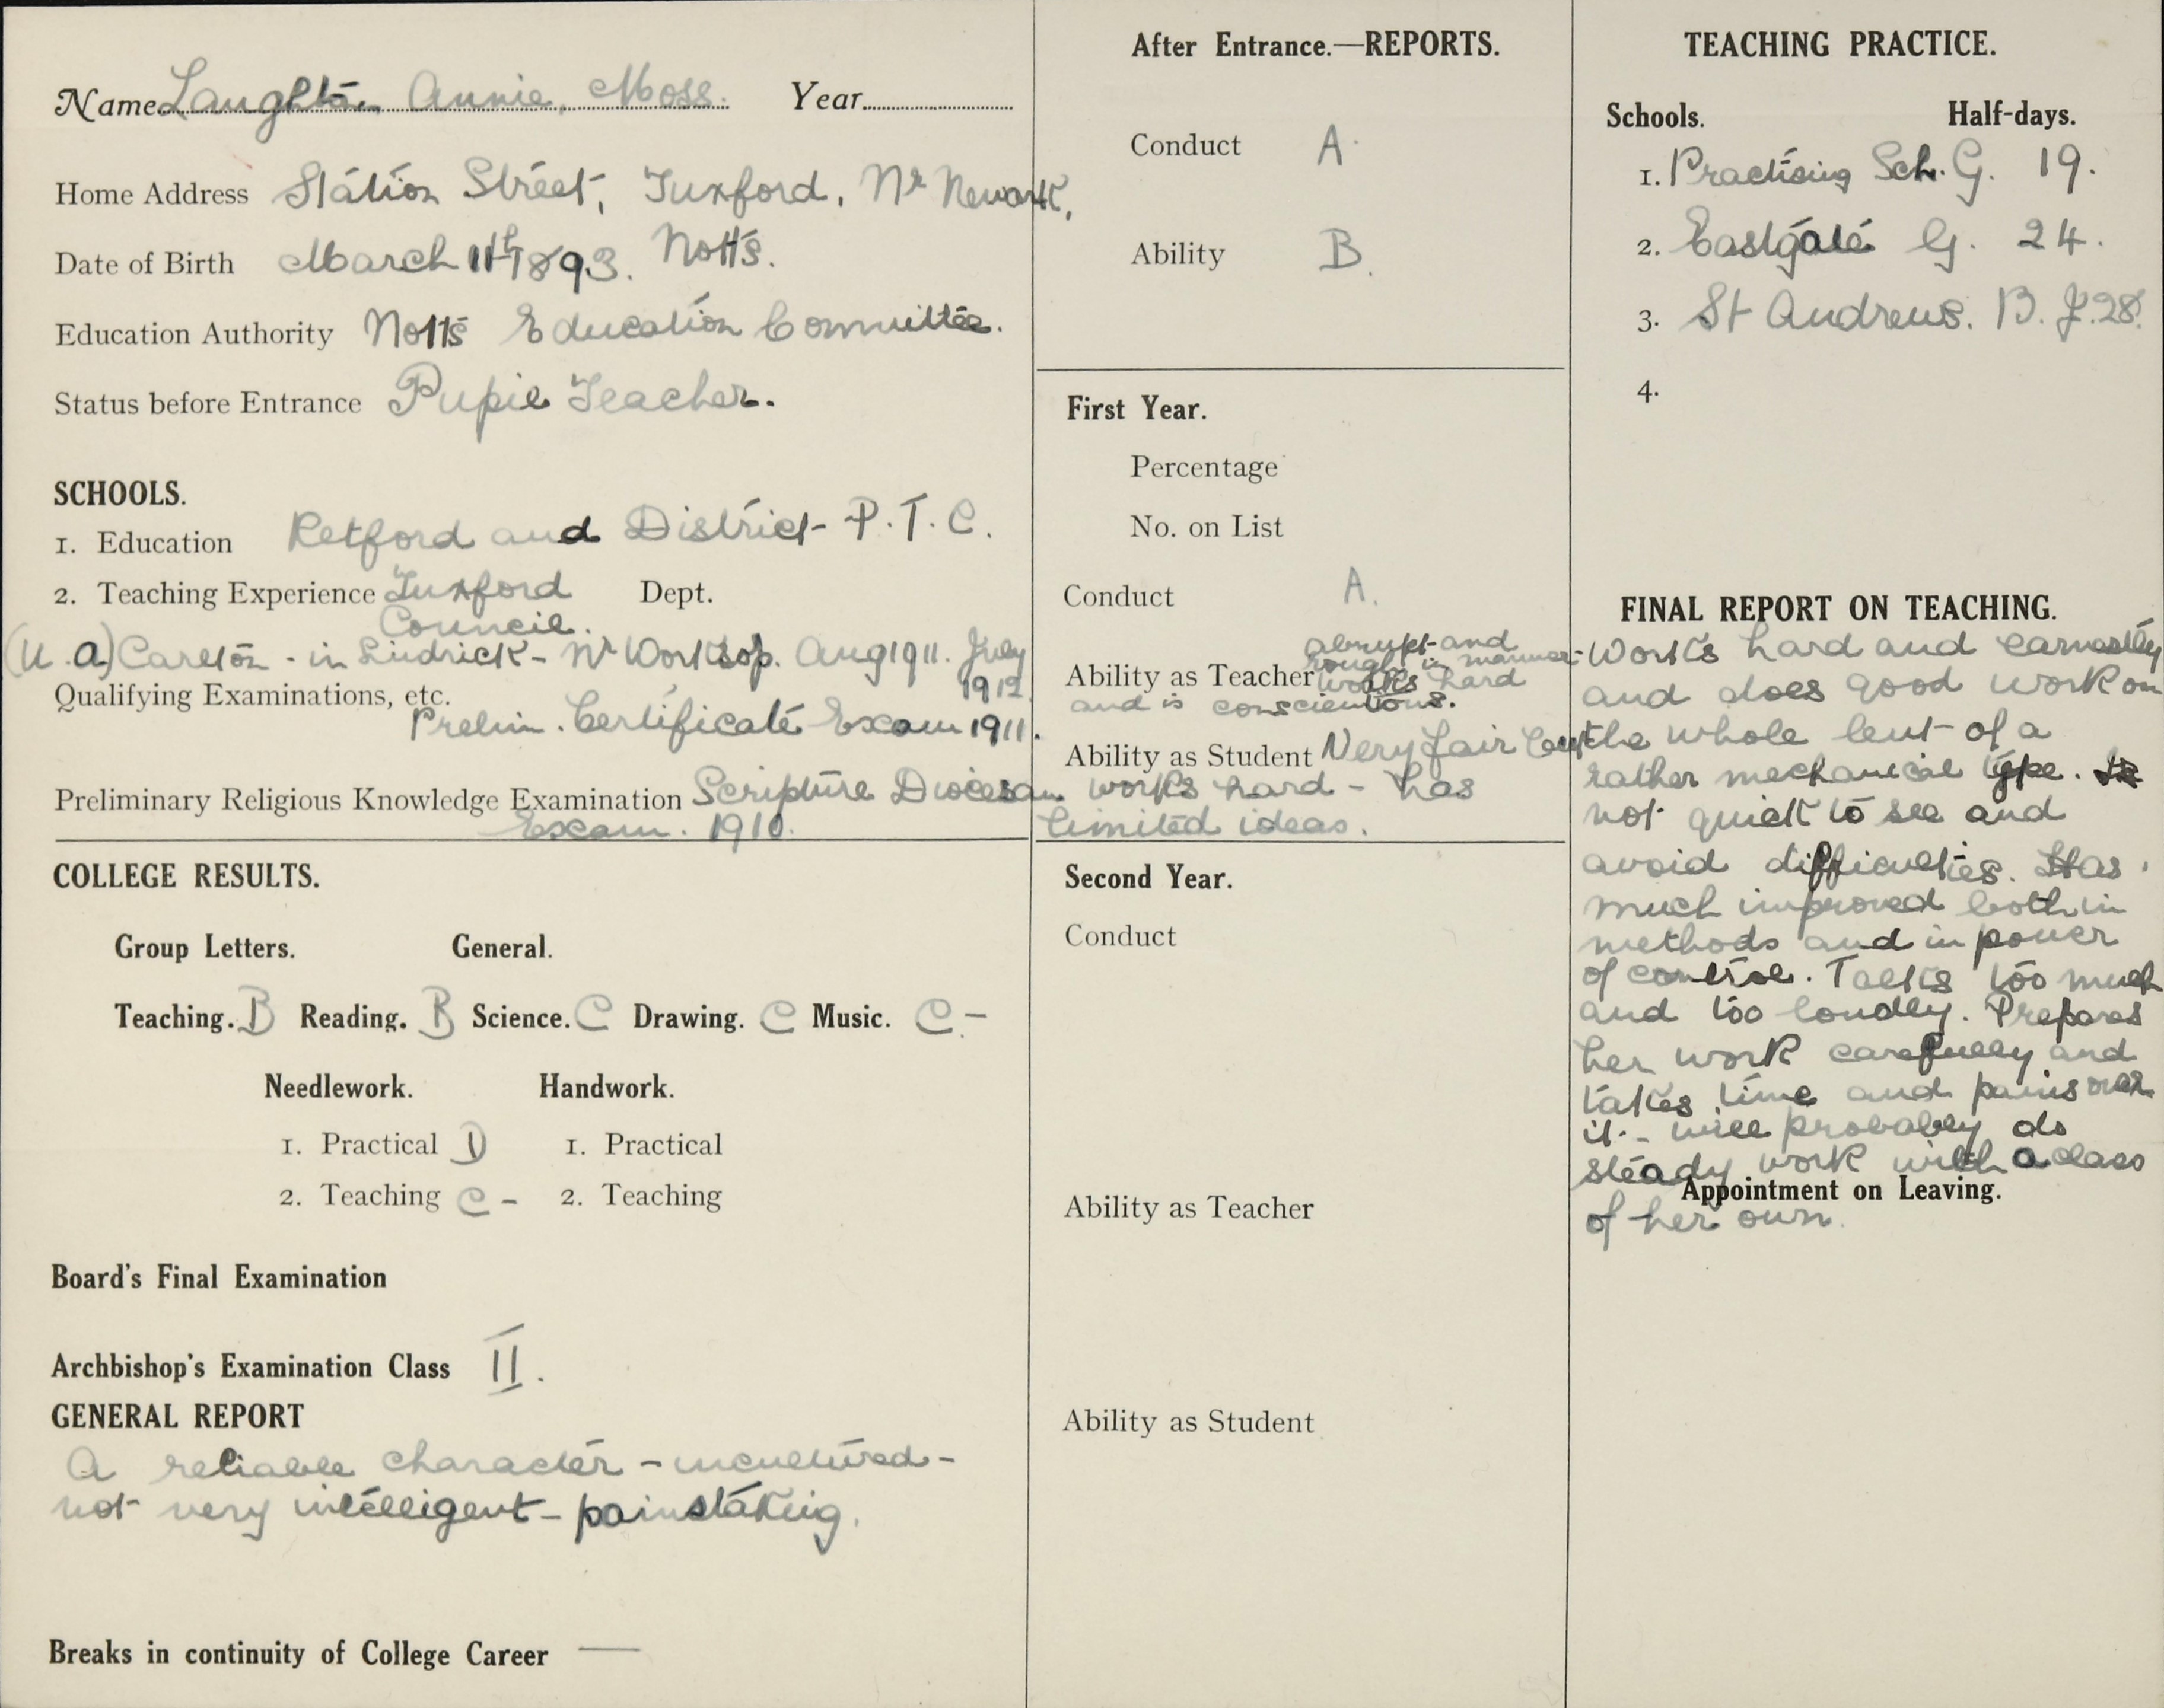 Name Laughton Annie, Moss. Year
Home Address Station Street, Tuxford, Nr Newark,
Notts.
Date of Birth March 11th 1893.
Education Authority Notts Education Committee.
Status before Entrance Pupil Teacher.
SCHOOLS.
1. Education Retford and District P.T.C.
2. Teaching Experience Tuxford Dept.
Council.
(U.A) Carlton-in-Lindrick - Nr Worksop. Aug 1911. July
1912
Qualifying Examinations, etc.
Prelim. Certificate Exam 1911.
Preliminary Religious Knowledge Examination Scripture Diocesan
Exam. 1910.
COLLEGE RESULTS.
Group Letters. General.
Teaching. B Reading. B Science. C Drawing. C Music. C-
Needlework. Handwork.
1. Practical D 1. Practical
2. Teaching C - 2. Teaching
Board's Final Examination
Archbishop's Examination Class II.
GENERAL REPORT
A reliable character - uncultured -
not very intelligent - painstaking.
Breaks in continuity of College Career —
After Entrance.—REPORTS.
Conduct A.
Ability B.
First Year.
Percentage
No. on List
Conduct A.
abrupt and
rough in manner -
Ability as Teacher works hard
and is conscientious.
Ability as Student Very fair but
works hard - has
limited ideas.
Second Year.
Conduct
Ability as Teacher
Ability as Student
TEACHING PRACTICE.
Schools. Half-days.
1. Practising Sch. G. 19.
2. Eastgate G. 24.
3. St Andrews. B. J. 28.
4.
FINAL REPORT ON TEACHING.
Works hard and earnestly
and does good work on
the whole but of a
rather mechanical type. Is
not quick to see and
avoid difficulties. Has
much improved both in
methods and in power
of control. Talks too much
and too loudly. Prepares
her work carefully and
takes time and pains over
it - will probably do
steady work with a class
Appointment on Leaving.
of her own.